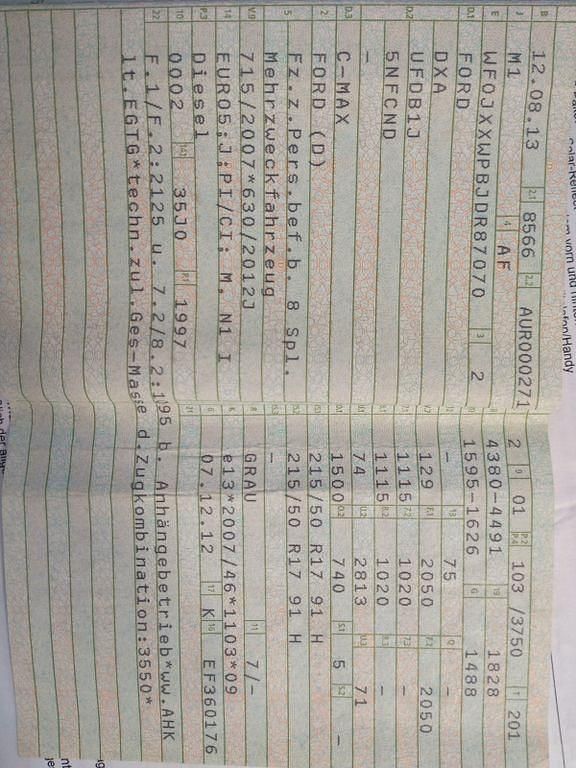 B 12.08.13 2.1 8566 2.2 AUR000271
J M1 4 AF
E WF0JXXWPBJDR87070 3 2
D.1 FORD
DXA
D.2 UFDB1J
5NFCND
–
D.3 C-MAX
2 FORD (D)
5 Fz.z.Pers.bef.b. 8 Spl.
Mehrzweckfahrzeug
V.9 715/2007*630/2012J
14 EURO5;J:PI/CI; M, N1 I
P.3 Diesel
10 0002 14.1 35J0 P.1 1997
22 F.1/F.2:2125 u. 7.2/8.2:1195 b. Anhängebetrieb*ww.AHK
lt.EGTG*techn.zul.Ges-Masse d.Zugkombination:3550*
2 9 01 P.2 P.4 103 /3750 T 201
4380-4491 19 1828
1595-1626 G 1488
– 13 75 Q –
V.7 129 F.1 2050 F.2 2050
7.1 1115 7.2 1020 7.3 –
8.1 1115 8.2 1020 8.3 –
U.1 74 U.2 2813 U.3 71
O.1 1500 O.2 740 S.1 5 S.2 –
15.1 215/50 R17 91 H
15.2 215/50 R17 91 H
15.3 –
R GRAU 11 7/-
K e13*2007/46*1103*09
6 07.12.12 17 K 16 EF360176
21